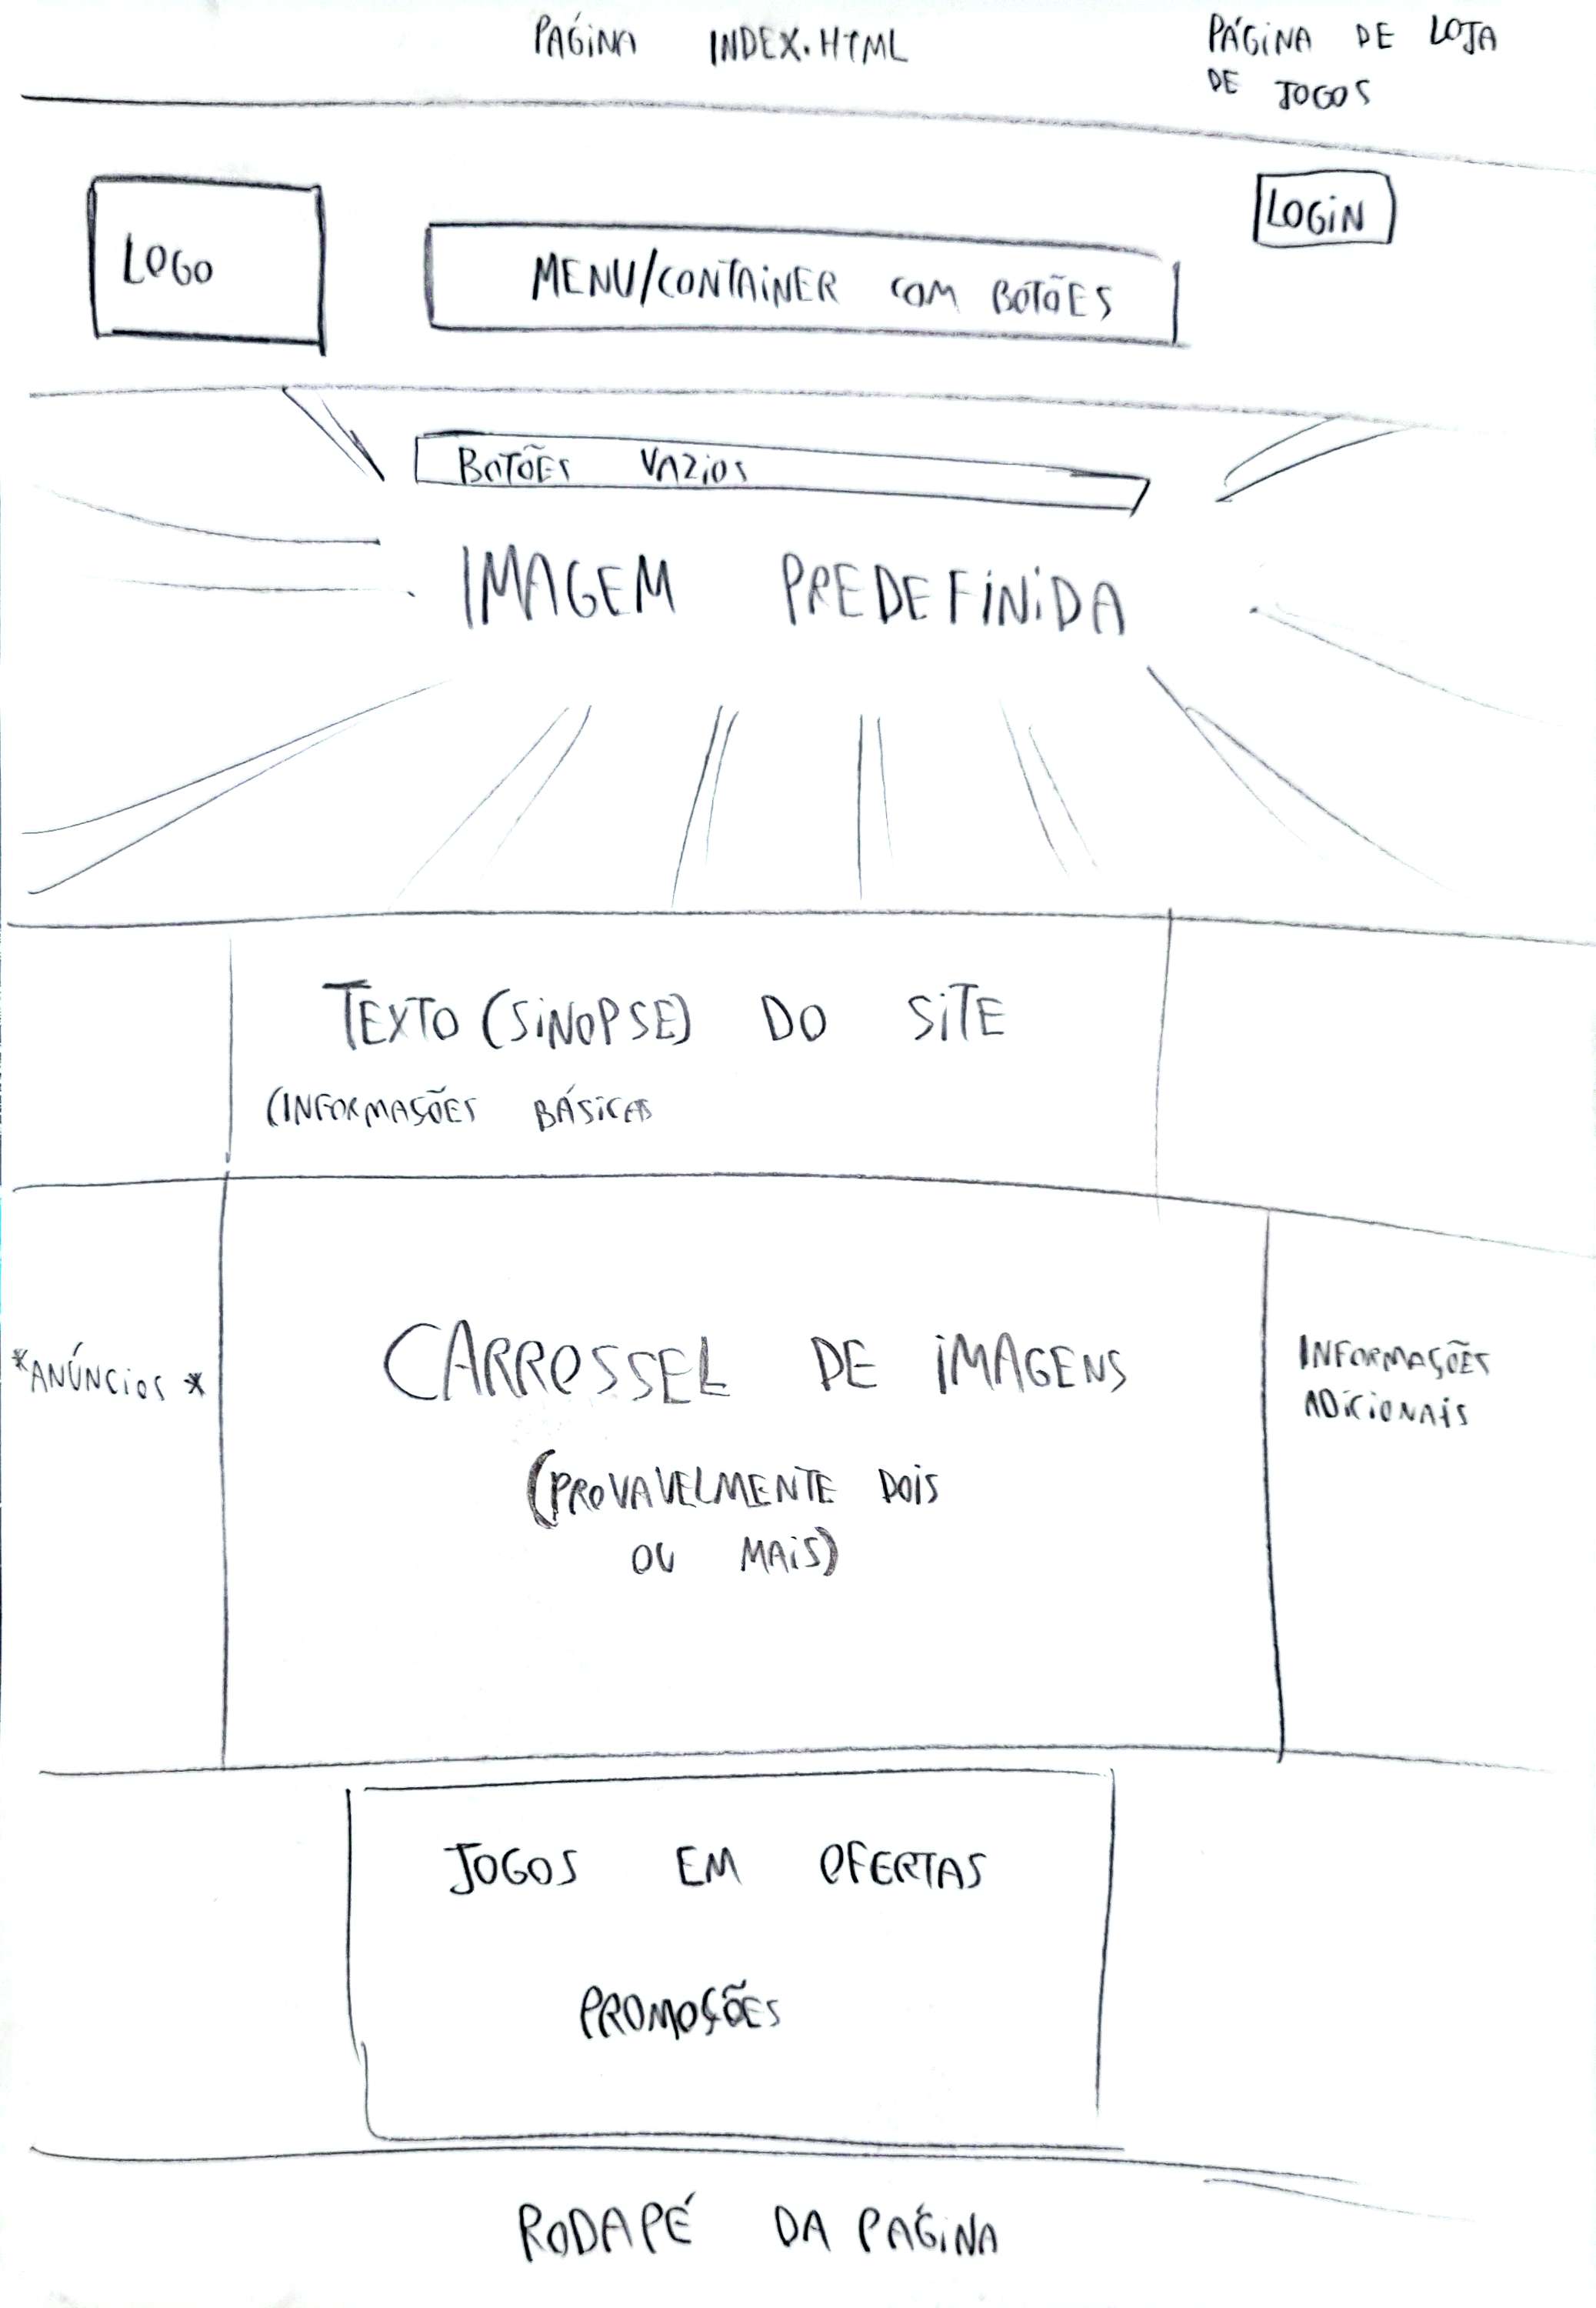 PÁGINA INDEX.HTML
PÁGINA DE LOJA
DE JOGOS
LOGO
MENU/CONTAINER COM BOTÕES
LOGIN
BOTÕES VAZIOS
IMAGEM PREDEFINIDA
TEXTO (SINOPSE) DO SITE
(INFORMAÇÕES BÁSICAS
*ANÚNCIOS*
CARROSSEL DE IMAGENS
(PROVAVELMENTE DOIS
OU MAIS)
INFORMAÇÕES
ADICIONAIS
JOGOS EM OFERTAS
PROMOÇÕES
RODAPÉ DA PÁGINA